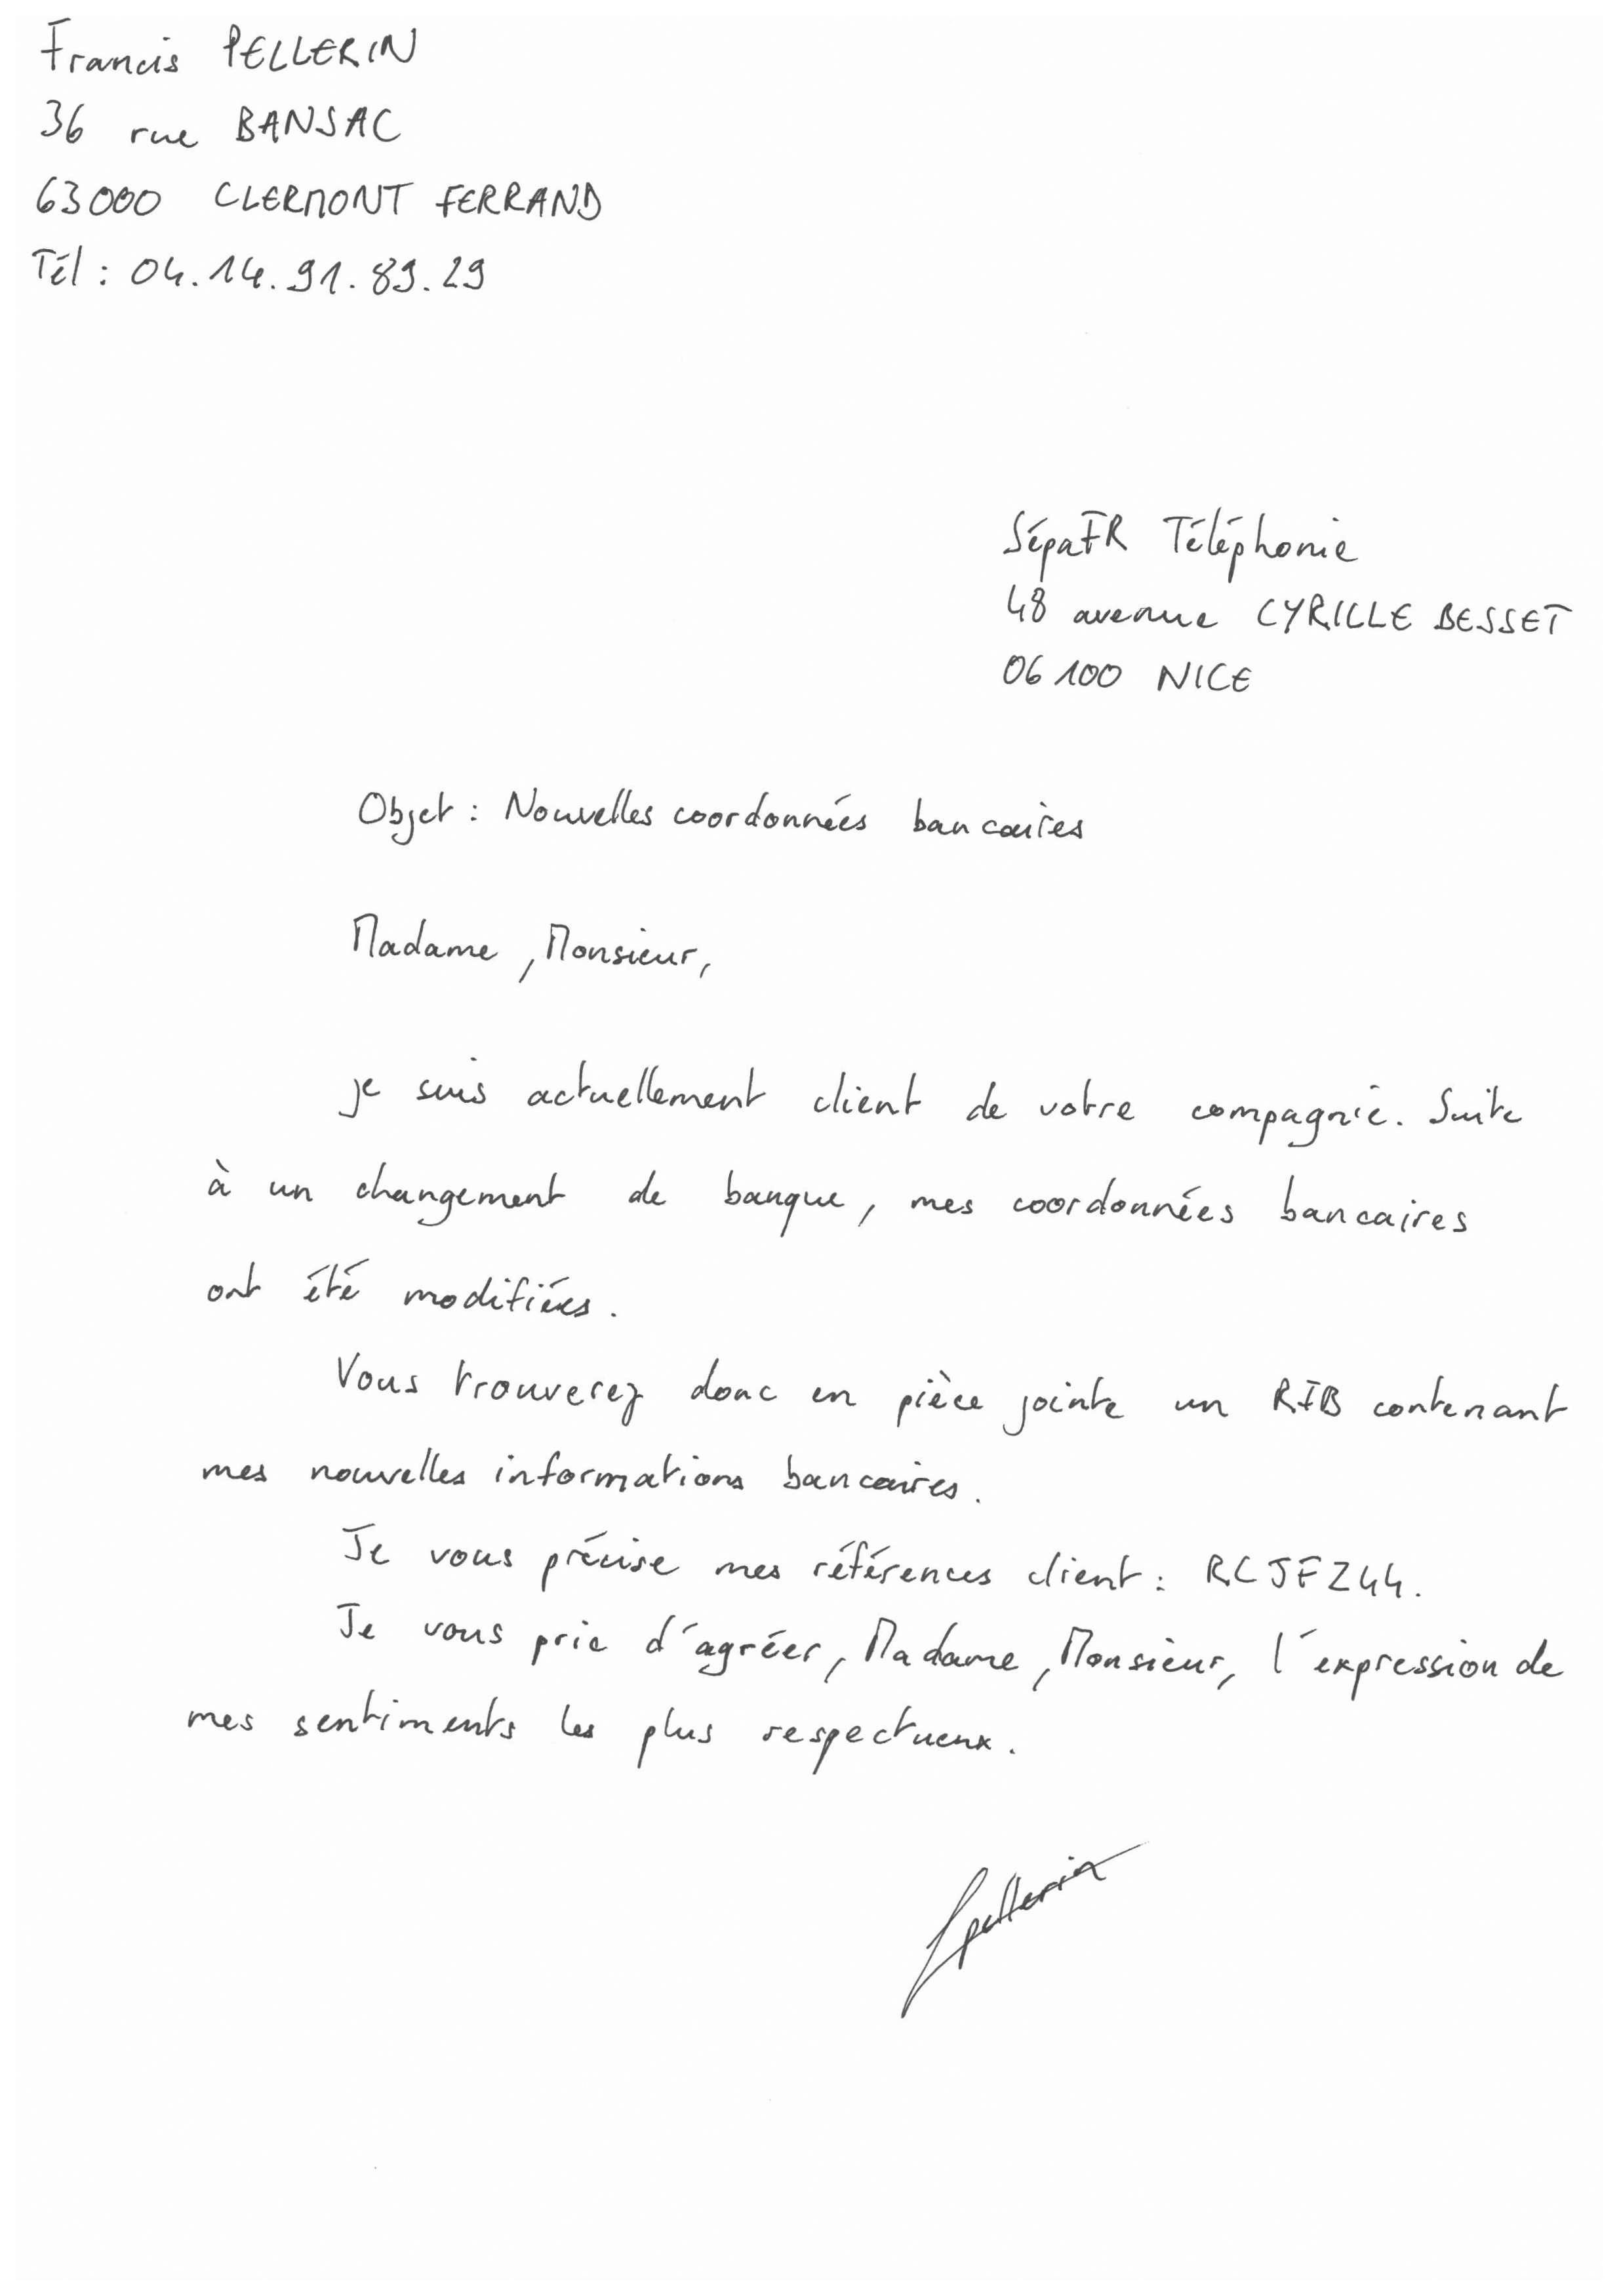 Francis PELLERIN
36 rue BANSAC
63000 CLERMONT FERRAND
Tél : 04.14.91.89.29
SépaFR Téléphonie
48 avenue CYRILLE BESSET
06100 NICE
Objet : Nouvelles coordonnées bancaires
Madame, Monsieur,
je suis actuellement client de votre compagnie. Suite
à un changement de banque, mes coordonnées bancaires
ont été modifiées.
Vous trouverez donc en pièce jointe un RIB contenant
mes nouvelles informations bancaires.
Je vous précise mes références client : RCJFZ44.
Je vous prie d'agréer, Madame, Monsieur, l'expression de
mes sentiments les plus respectueux.
fpellerin